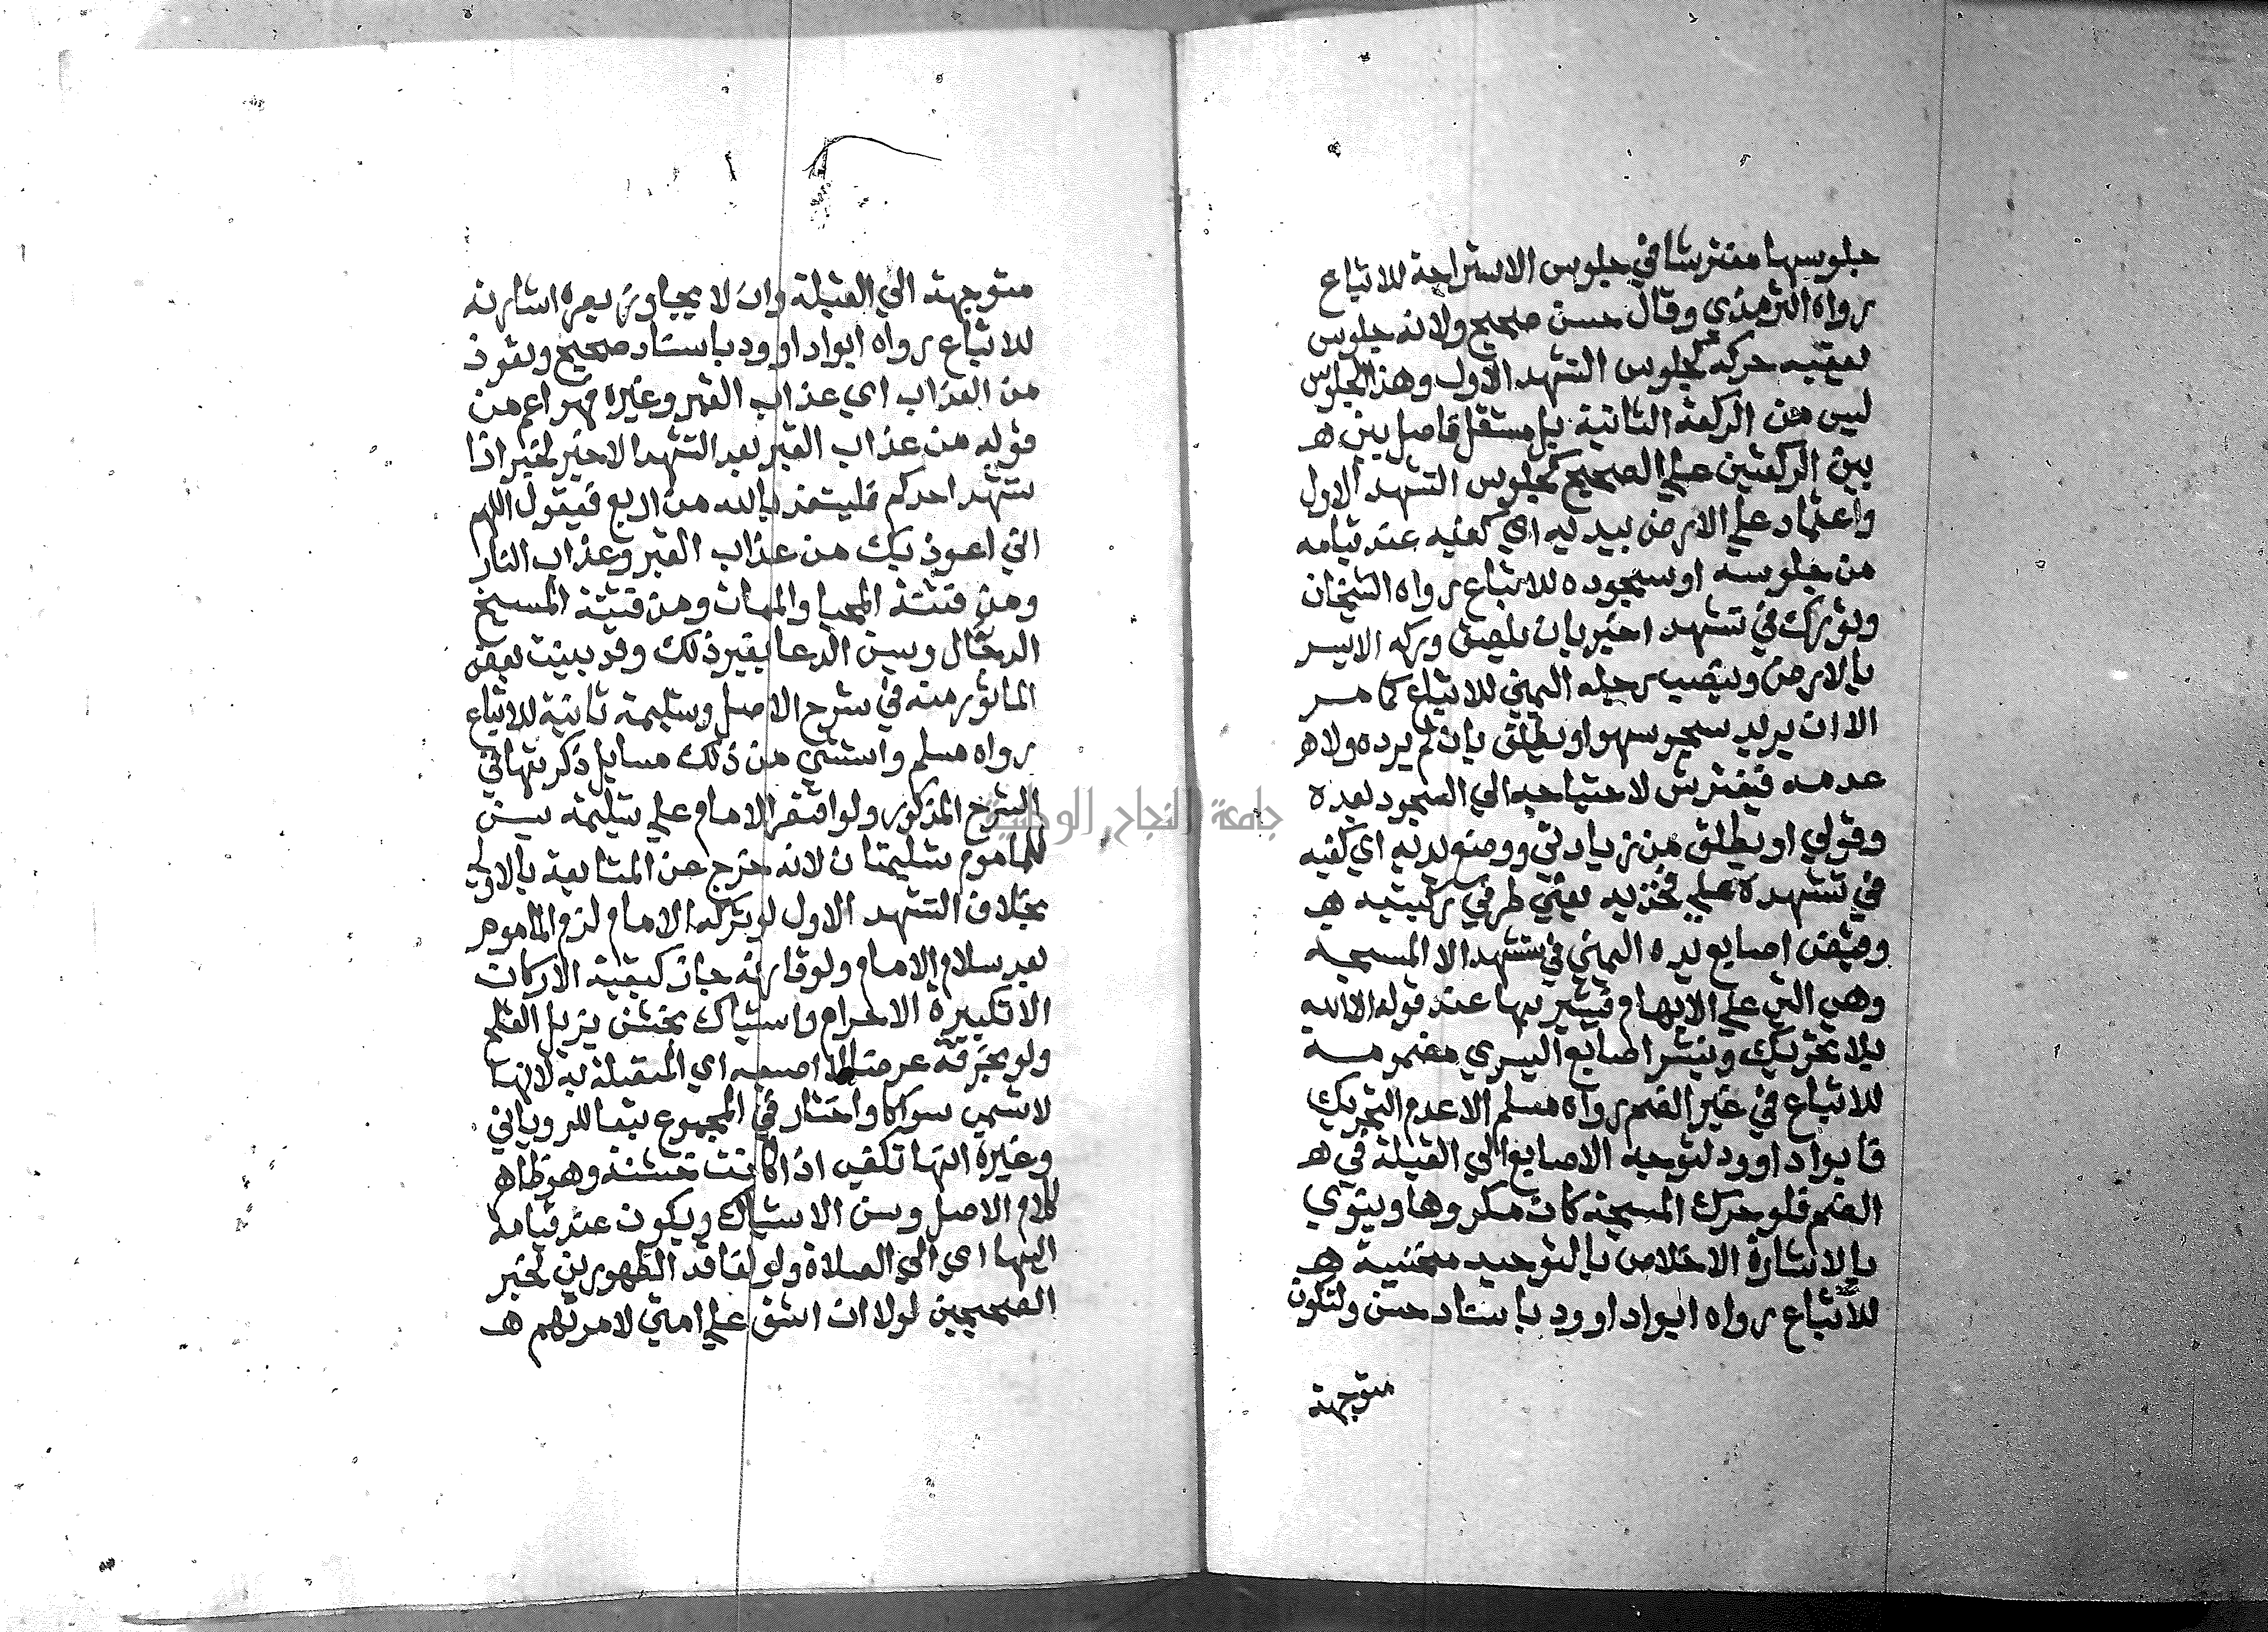 جلوسها مفترشا في جلوس الاستراحة للاتباع
رواه الترمذي وقال حسن صحيح ولانه جلوس
يعقبه حركة كجلوس التشهد الاول وهذا الجلوس
ليس من الركعة الثانية بل مستقل فاصل بين ه
بين الركعتين علي الصحيح كجلوس التشهد الاول
واعتماد علي الارض بيديه اي كفيه عند قيامه
من جلوسه او سجوده للاتباع رواه الشيخان
وتورك في تشهد اخير بان يلصق وركه الايسر
بالارض وينصب رجله اليمني للاتباع كما مر
الا ان يريد سجو سهو او يطلق بان لم يرده ولا ه
عدمه فيفترش لاحتياجه الي السجود بعده
وقولي او يطلق من زيادتي ووضع يديه اي كفيه
في تشهده علي فخذيه يعني طرفي ركبتيه ه
وقبض اصابع يده اليمني في تشهد الا المسبحه
وهي التي علي الابهام فيشير بها عند قوله الا الله
بلا تحريك وينشر اصابع اليسري مضمومه
للاتباع في غير الضم رواه مسلم الا عدم التحريك
فابو داوود لتوجيه الاصابع الي القبلة في ه
الضم فلو حرك المسبحة كان مكروها وينوي
بالاشارة الاخلاص بالتوحيد منحنية ه
للاتباع رواه ابو داوود باسناد حسن ولتكون
متوجهة
متوجهة الي القبلة وان لا يجاوز بصره اشارته
للاتباع رواه ابو داوود باسناد صحيح وتعوذ
من العذاب اي عذاب القبر وغيره فهو اعم من
قوله من عذاب القبر بعد التشهد الاخير لخبر اذا
تشهد احدكم فليستعذ بالله من اربع فيقول اللهم
اني اعوذ بك من عذاب القبر وعذاب النار
ومن فتنة المحيا والممات ومن فتنة المسيح
الدجال ويسن الدعا بغير ذلك وقد بينت بعض
الماثور منه في شرح الاصل وتسليمة ثانية للاتباع
رواه مسلم واستثني من ذلك مسايل ذكرتها في
الشرح المذكور ولو اقتصر الامام علي تسليمة يسن
للماموم تسليمتان لانه خرج عن المتابعة بالاولي
بخلاف التشهد الاول لو تركه الامام لزم الماموم
بعد سلام الامام ولو قارنه جاز كبقية الاركان
الا تكبيرة الاحرام واستياك بخشن يزيل القلح
ولو بخرقة عرضا لا اصبعه اي المتصلة به لانها
لا تسمي سواكا واختار في المجموع تبعا للروياني
وغيره انها تكفي اذا كانت خشنة وهو ظاهر
كلام الاصل وسن الاستياك ويكون عند قيامه
اليها اي الي الصلاة ولو لفاقد الطهورين لخبر
الصحيحين لولا ان اشق علي امتي لامرتهم ه
جامعة النجاح الوطنية